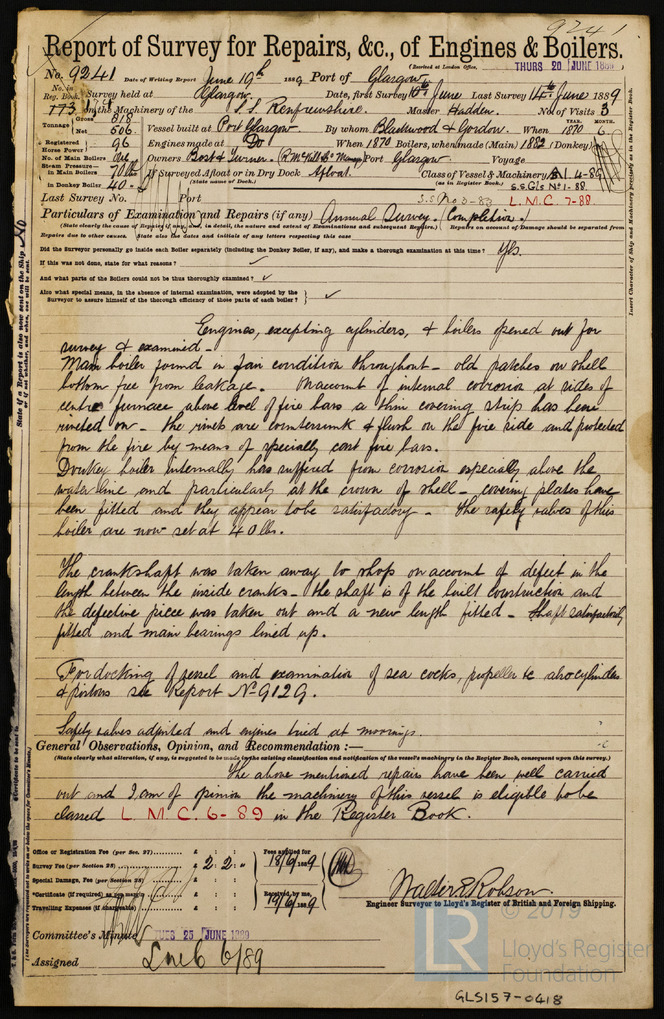 9241
Report of Survey for Repairs, &c., of Engines & Boilers.
(Received at London Office, THURS 20 JUNE 1889
No. 9241 Date of Writing Report June 19th 1889 Port of Glasgow
No. in Reg. Book. Survey held at Glasgow Date, first Survey 10th June Last Survey 14th June 1889
773 on the Machinery of the S.S. Renfrewshire. Master Hadden No. of Visits 3
Tonnage Gross 818 Net 506 Vessel built at Port Glasgow By whom Blackwood & Gordon. When YEAR. 1870 MONTH. 6
Registered Horse Power 96 Engines made at Do When 1870 Boilers, when made (Main) 1882 (Donkey)
No. of Main Boilers One Owners & Turner. Port Glasgow Voyage
Steam Pressure in Main Boilers 70 lb If Surveyed Afloat or in Dry Dock Afloat. Class of Vessel & Machinery
in Donkey Boiler 40 (State name of Dock.) (as in Register Book.) S.S. Gls No 1-88
Last Survey No. Port S.S. No 3-83 L.M.C. 7-88
Particulars of Examination and Repairs (if any) Annual Survey. (Completion.)
(State clearly the cause of Repairs, if any, and, in detail, the nature and extent of Examinations and subsequent Repairs.) Repairs on account of Damage should be separated from
Repairs due to other causes. State also the dates and initials of any letters respecting this case
Did the Surveyor personally go inside each Boiler separately (including the Donkey Boiler, if any), and make a thorough examination at this time? Yes.
If this was not done, state for what reasons? ✓
And what parts of the Boilers could not be thoroughly examined? ✓
Also what special means, in the absence of internal examination, were adopted by the
Surveyor to assure himself of the thorough efficiency of those parts of each boiler? ✓
Engines, excepting cylinders, & boilers opened out for
survey & examined.
Main boiler found in fair condition throughout - old patches on shell
bottom free from leakage. On account of internal corrosion at sides of
centre furnace above level of fire bars a thin covering strip has been
riveted on - the rivets are countersunk & flush on the fire side and protected
from the fire by means of specially cast fire bars.
Donkey boiler internally has suffered from corrosion especially above the
water line and particularly at the crown of shell - covering plates have
been fitted and they appear to be satisfactory - the safety valves of this
boiler are now set at 40 lbs.
The crankshaft was taken away to shops on account of defect in the
length between the inside cranks - the shaft is of the built construction and
the defective piece was taken out and a new length fitted - Shaft satisfactorily
fitted and main bearings lined up.
For docking of vessel and examination of sea cocks, propeller &c also cylinders
& pistons see Report No 9129.
Safety valves adjusted and engines tried at moorings.
General Observations, Opinion, and Recommendation :—
(State clearly what alteration, if any, is suggested to be made in the existing classification and notification of the vessel's machinery in the Register Book, consequent upon this survey.)
The above mentioned repairs have been well carried
out and I am of opinion the machinery of this vessel is eligible to be
classed L.M.C. 6-89 in the Register Book.
Office or Registration Fee (per Sec. 27) £ : :
Survey Fee (per Section 28) £ 2 : 2 : „
Special Damage, Fee (per Section 28) £ : :
*Certificate (if required) as per margin £ : :
Travelling Expenses (if chargeable) £ : :
Fees applied for 18/6/1889
Received by me, 19/6/1889
Walter S. Robson.
Engineer Surveyor to Lloyd's Register of British and Foreign Shipping.
Committee's Minute TUES 25 JUNE 1889
Assigned Lmc 6/89
© 2019
LR Lloyd's Register
Foundation
GLS157-0418